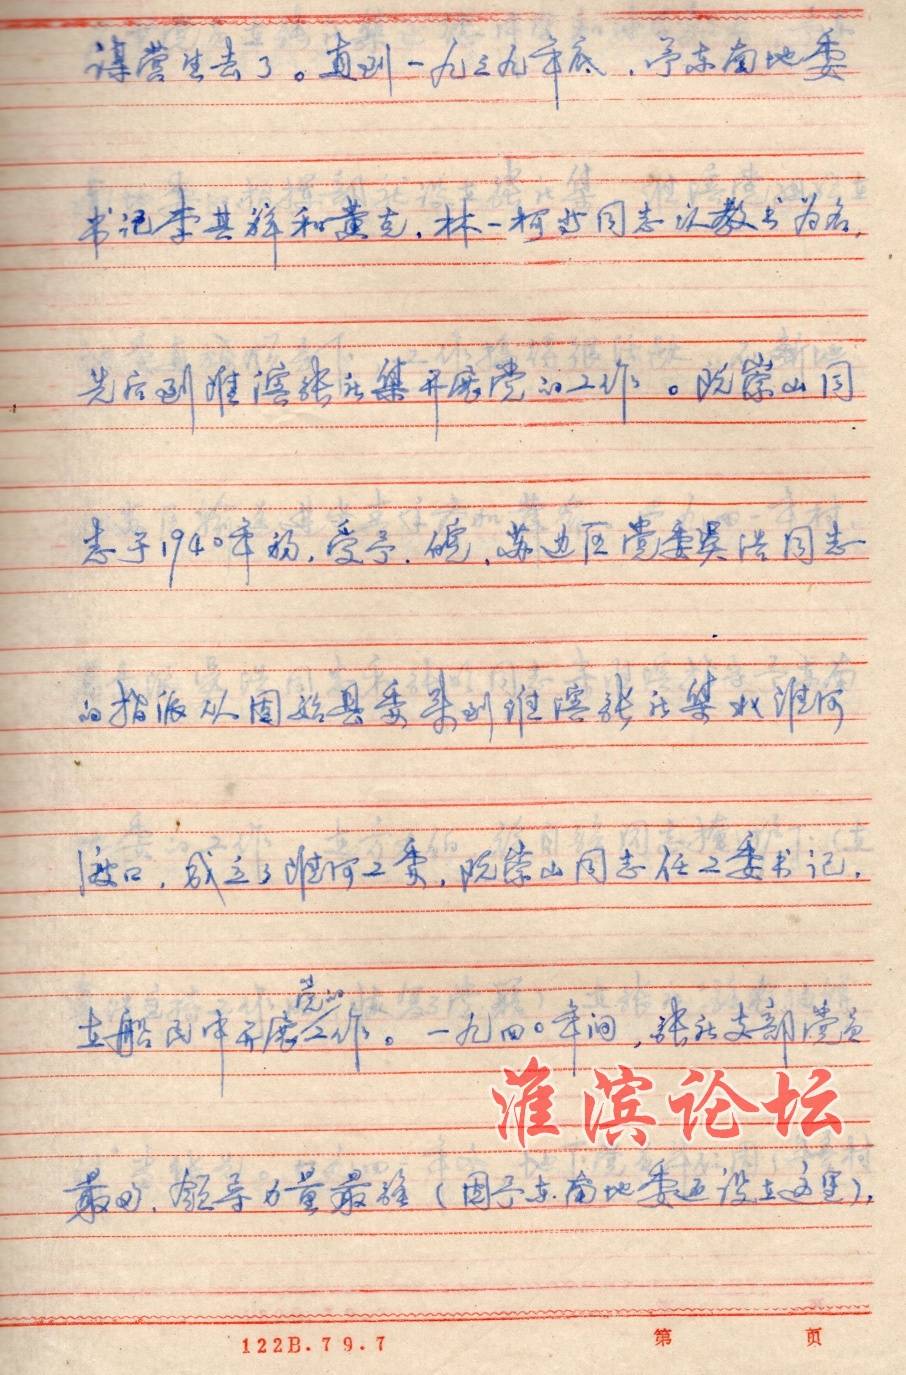 谋营生去了。直到一九三九年底，予东南地委
书记李其祥和黄克，林一柯等同志以教书为名，
先后到淮滨张庄集开展党的工作。阮崇山同
志于1940年初，受予、皖、苏边区党委吴浩同志
的指派从固始县委来到淮滨张庄集以淮河
渡口，成立了淮河工委，阮崇山同志任工委书记，
党的
在船民中开展工作。一九四〇年间，张庄支部党员
最多，领导力量最强（因予东南地委还设在这里），
淮滨论坛
122B.79.7
第 页